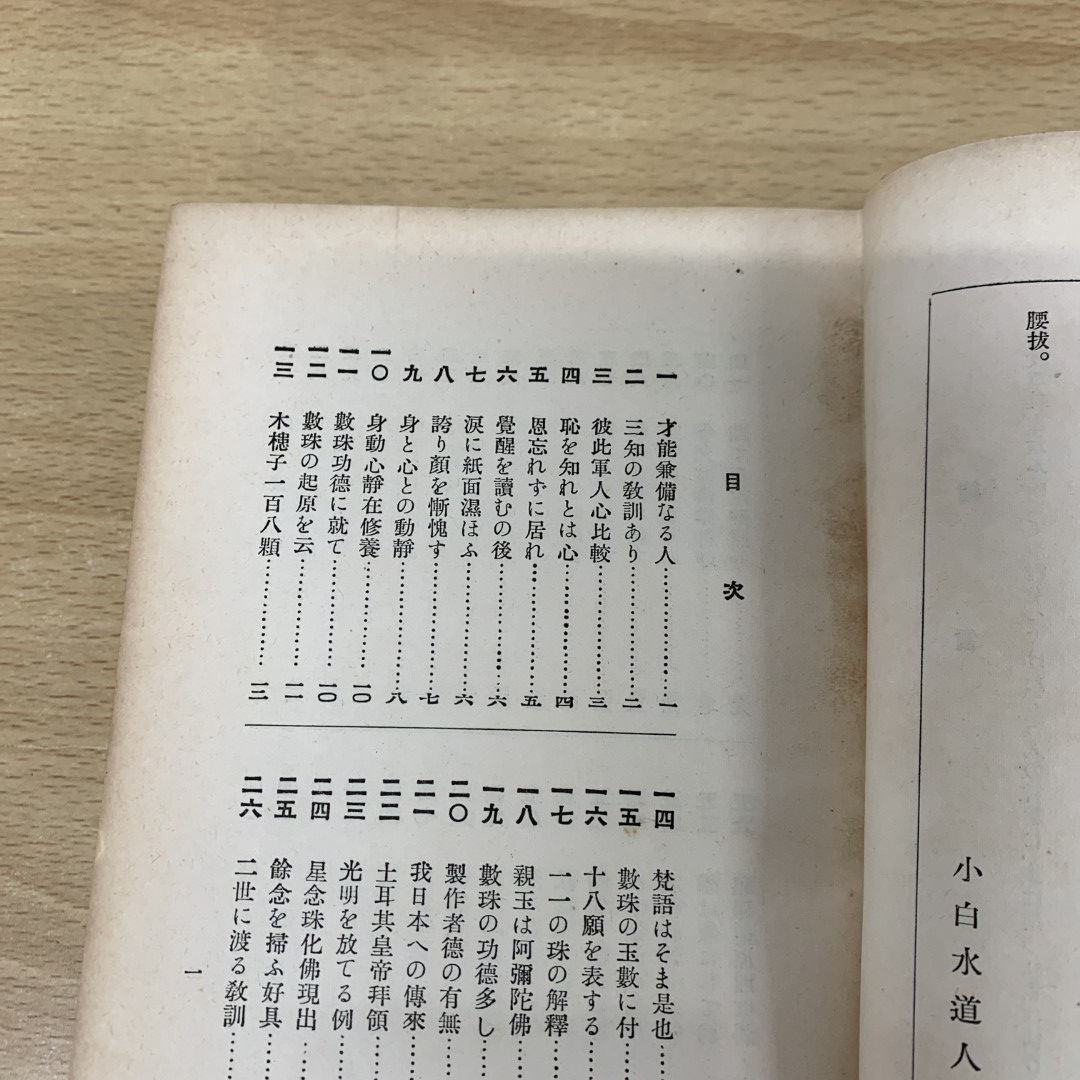 腰拔。
小白水道人
目次
一 才能兼備なる人……………一
二 三知の敎訓あり……………二
三 彼此軍人心比較……………三
四 恥を知れとは心……………四
五 恩忘れずに居れ……………五
六 覺醒を讀むの後……………六
七 淚に紙面濕ほふ……………六
八 誇り顏を慚愧す……………七
九 身と心との動靜……………八
一〇 身動心靜在修養……………一〇
一一 數珠功德に就て……………一〇
一二 數珠の起原を云……………一一
一三 木槵子一百八顆……………一二
一四 梵語はそま是也……
一五 數珠の玉數に付……
一六 十八願を表する……
一七 一一の珠の解釋……
一八 親玉は阿彌陀佛……
一九 數珠の功德多し……
二〇 製作者德の有無……
二一 我日本への傳來……
二二 土耳其皇帝拜領……
二三 光明を放てる例……
二四 星念珠化佛現出……
二五 餘念を掃ふ好具……
二六 二世に渡る敎訓……
一